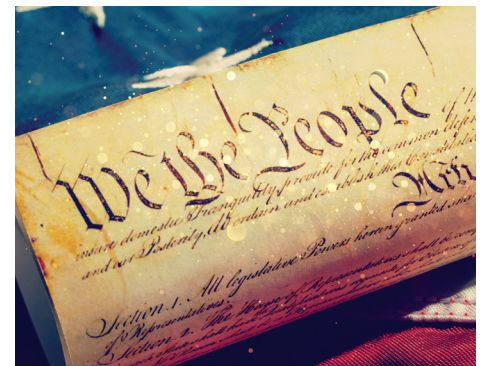 We the People of th
insure domestic Tranquility, provide for the common defen
and our Posterity, do ordain and establish this Constitution
Arti
Section 1. All legislative Powers herein granted sha
of Representatives.
Section 2. The House of Representatives shall be com